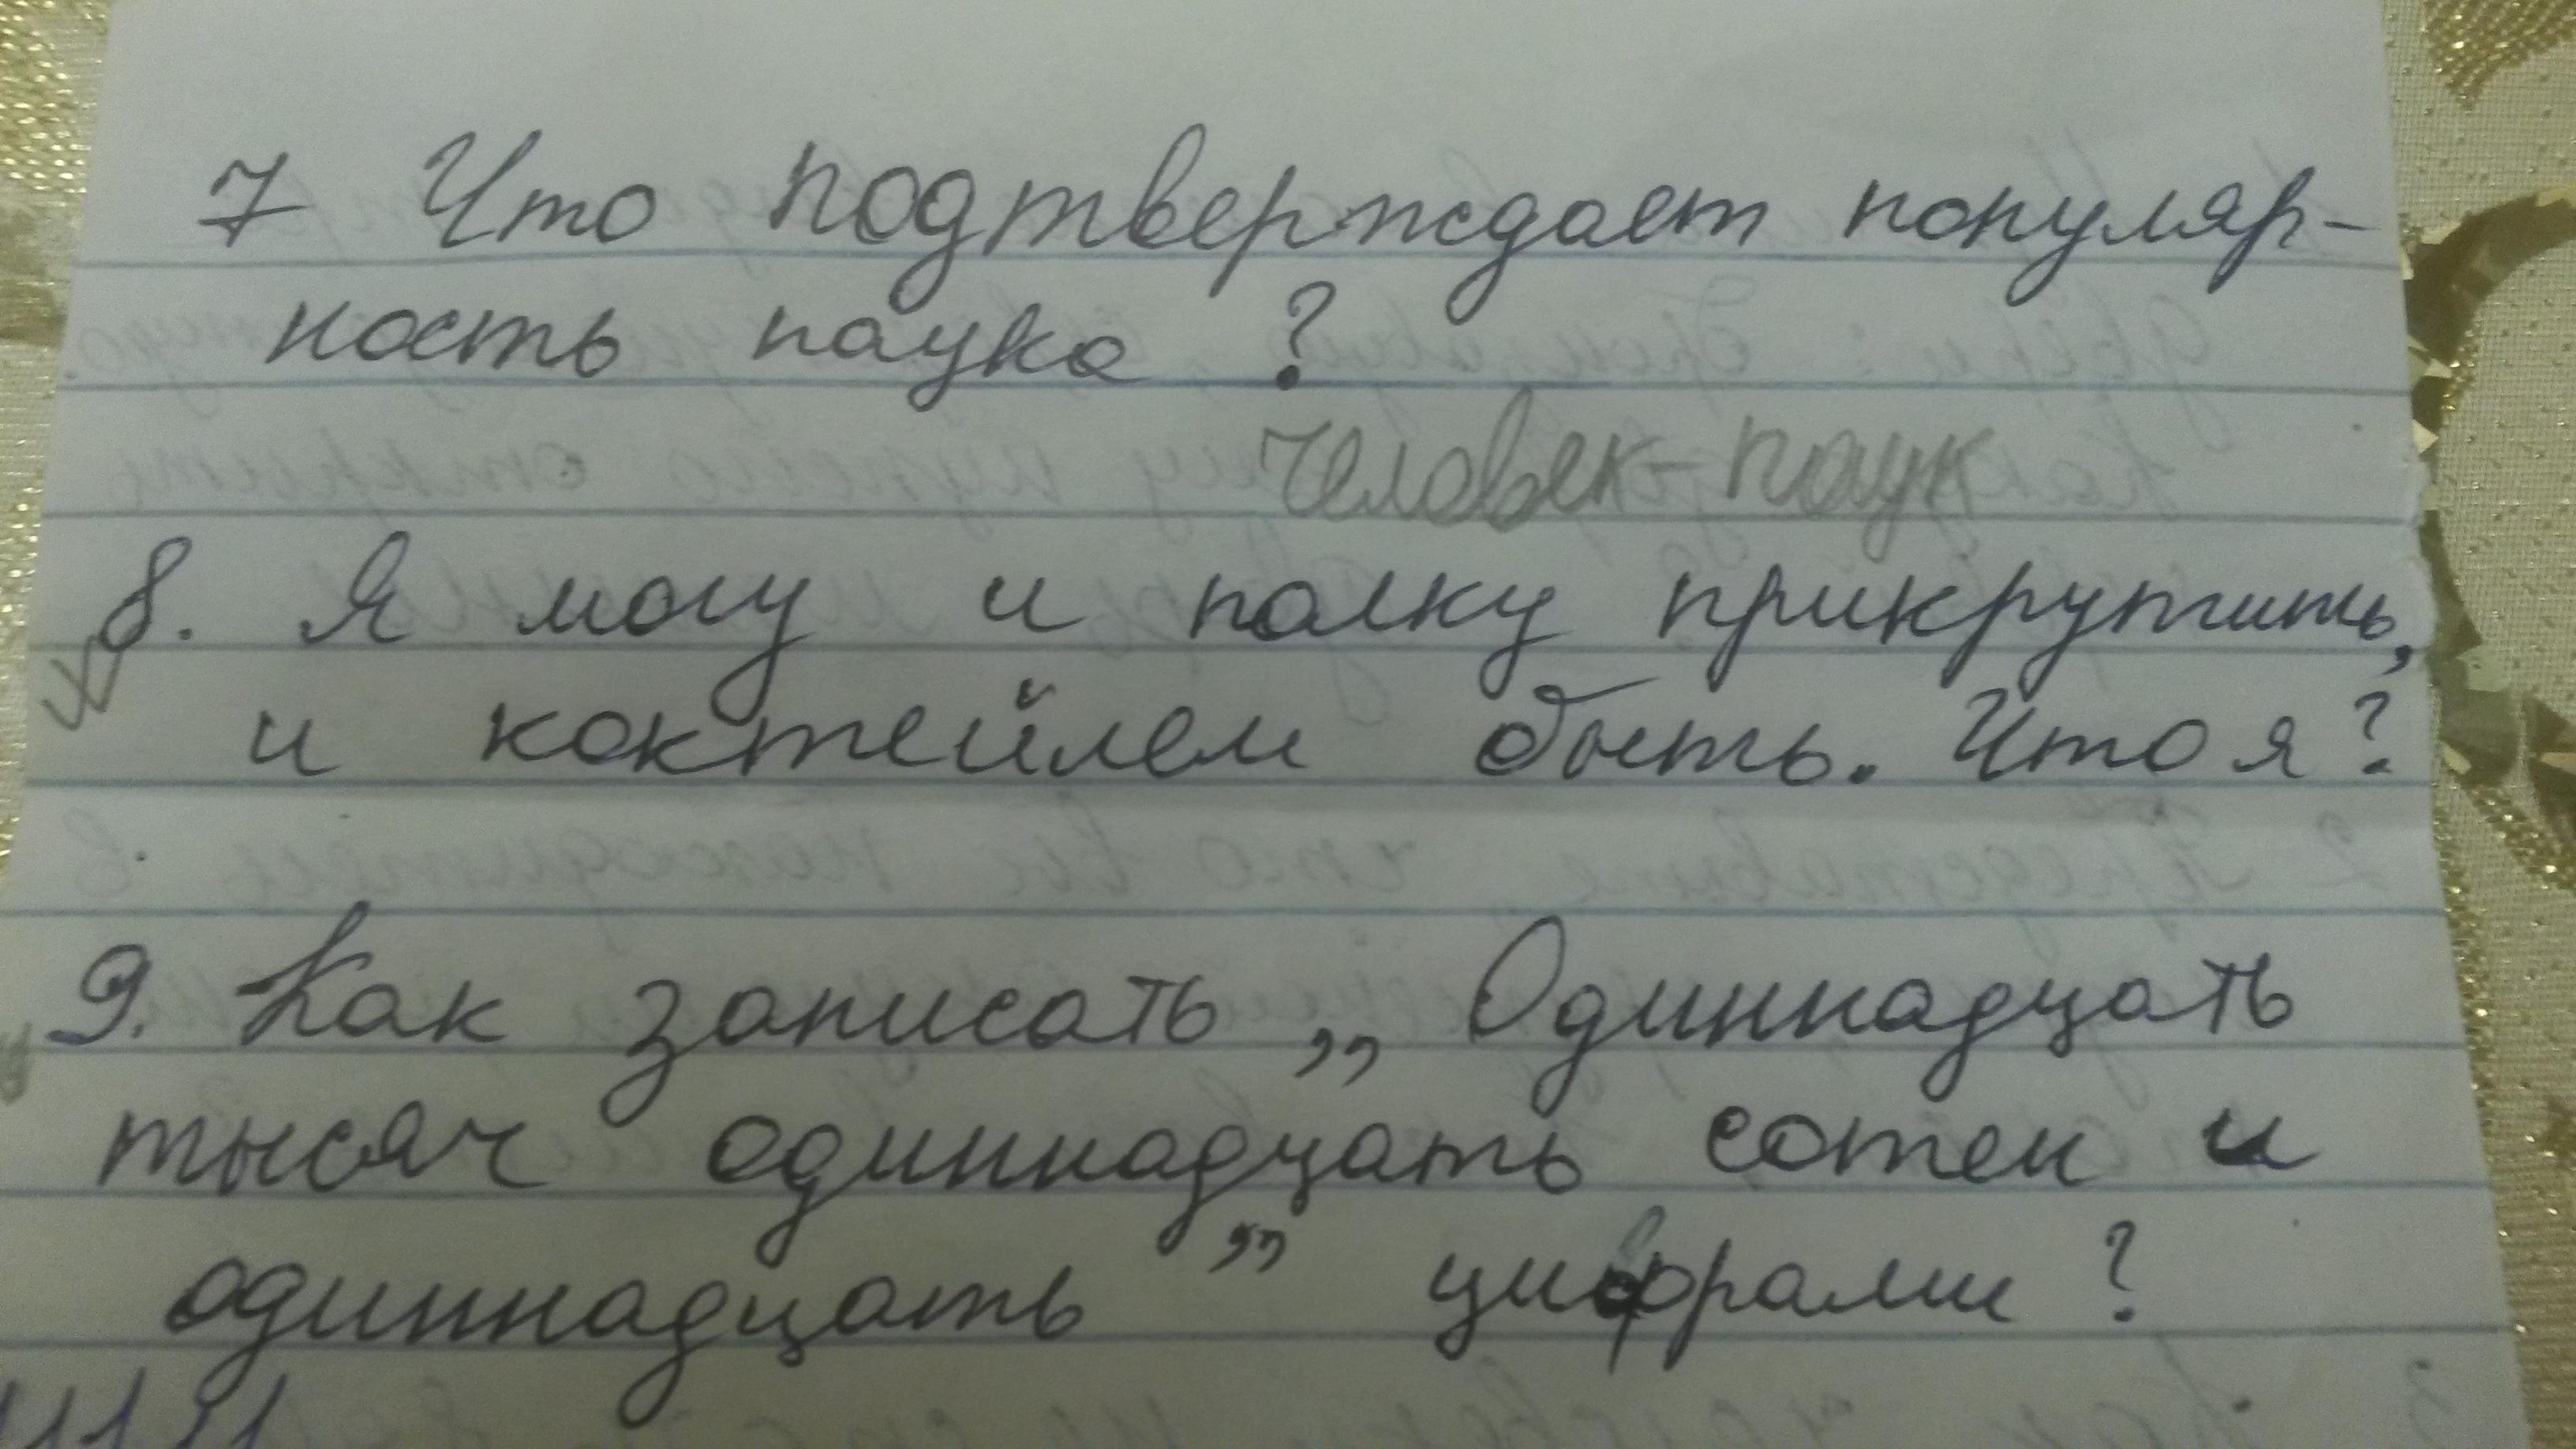 7 Что подтверждает популяр-
ность паука ?
Человек-паук
8. Я могу и полку прикрутить,
и коктейлем быть. Что я?
9. Как записать „ Одиннадцать
тысяч одиннадцать сотен и
одиннадцать ” цифрами ?